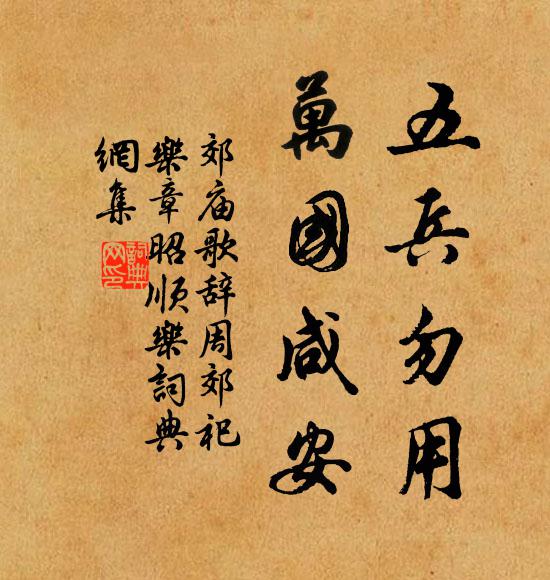 五兵勿用
萬國咸安
郊庙歌辞周郊祀
樂章昭順樂詞典
網集
詞典
网印